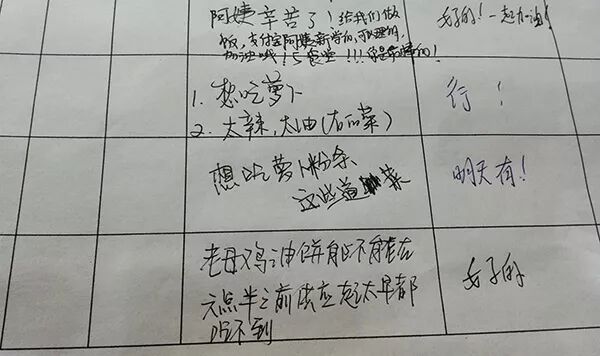 阿姨辛苦了!给我们做 好的!一起加油!
饭,支付宝阿姨新学的,可以理的,
加油哦!
1. 想吃萝卜 行!
2. 太辣,太油(有的菜)
想吃萝卜粉条 明天有!
这些道 菜
老母鸡油饼能不能在 好的
六点半之前供应起太早都
吃不到